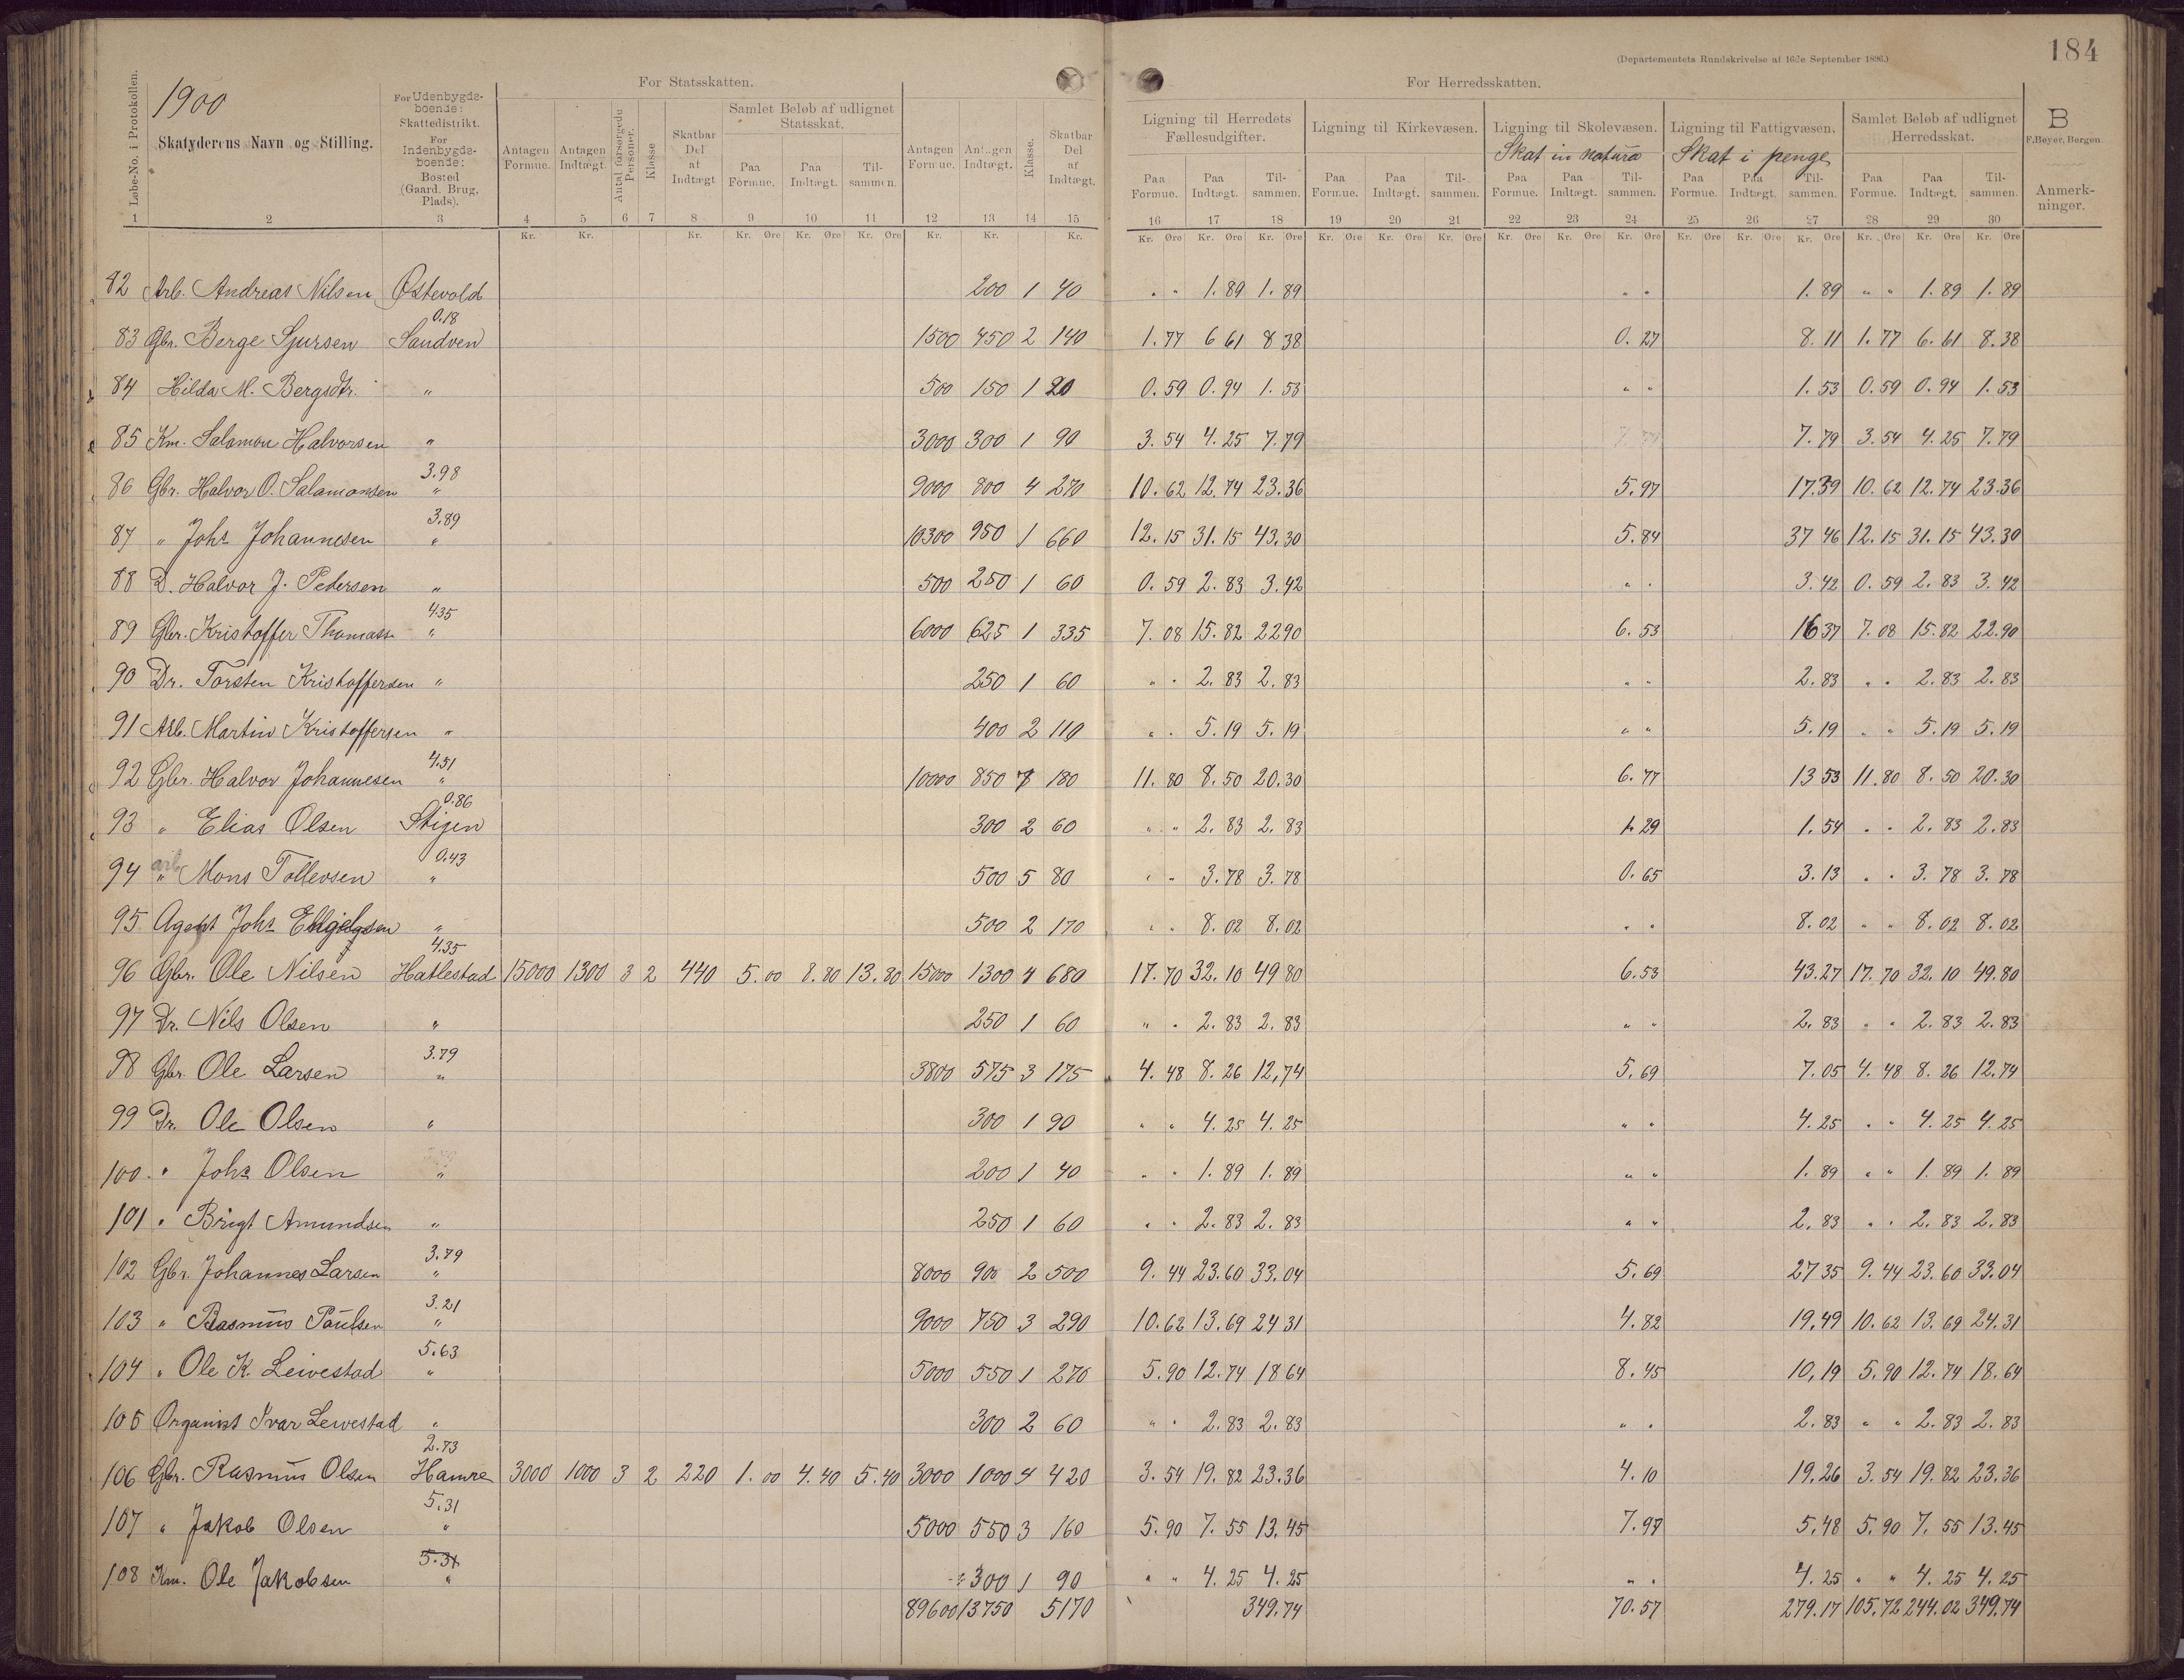 184
(Departementets Rundskrivelse af 16de September 1896.)
1900
For Statsskatten.
For Herredsskatten.
Løbe-No. i Protokollen.
Skatyderens Navn og Stilling.
For Udenbygds-boende: Skattedistrikt. For Indenbygds-boende: Bosted (Gaard, Brug, Plads).
Antagen Formue.
Antagen Indtægt.
Antal forsørgede Personer.
Klasse
Skatbar Del af Indtægt
Samlet Beløb af udlignet Statsskat.
Paa Formue. Paa Indtægt. Til-sammen.
Antagen Formue.
Antagen Indtægt.
Klasse.
Skatbar Del af Indtægt.
Ligning til Herredets Fællesudgifter.
Paa Formue. Paa Indtægt. Til-sammen.
Ligning til Kirkevæsen.
Paa Formue. Paa Indtægt. Til-sammen.
Ligning til Skolevæsen.
Skat in natura
Paa Formue. Paa Indtægt. Til-sammen.
Ligning til Fattigvæsen.
Skat i penge
Paa Formue. Paa Indtægt. Til-sammen.
Samlet Beløb af udlignet Herredsskat.
Paa Formue. Paa Indtægt. Til-sammen.
B
F. Beyer, Bergen.
Anmerk-ninger.
1 2 3 4 5 6 7 8 9 10 11 12 13 14 15 16 17 18 19 20 21 22 23 24 25 26 27 28 29 30
Kr. Kr. Kr. Kr. Øre Kr. Øre Kr. Øre Kr. Kr. Kr. Kr. Øre Kr. Øre Kr. Øre Kr. Øre Kr. Øre Kr. Øre Kr. Øre Kr. Øre Kr. Øre Kr. Øre Kr. Øre Kr. Øre Kr. Øre Kr. Øre Kr. Øre
82 Arb. Andreas Nilsen Østevold 200 1 40 " " 1.89 1.89 " " 1.89 " " 1.89 1.89
0.18
83 Gbr. Berge Sjursen Sandven 1500 450 2 140 1.77 6 61 8 38 0.27 8.11 1.77 6.61 8.38
84 Hilda M. Bergsdtr. " 500 150 1 20 0.59 0.94 1.53 " " 1.53 0.59 0.94 1.53
85 Km. Salamon Halvorsen " 3000 300 1 90 3.54 4.25 7.79 7.79 3.54 4.25 7.79
3.98
86 Gbr. Halvor O. Salamonsen " 9000 800 4 270 10.62 12.74 23.36 5.97 17.39 10.62 12.74 23.36
3.89
87 " Johs Johannesen " 10300 950 1 660 12.15 31.15 43.30 5.84 37 46 12.15 31.15 43.30
88 D. Halvor J. Pedersen " 500 250 1 60 0.59 2.83 3.42 " " 3.42 0.59 2.83 3.42
4.35
89 Gbr. Kristoffer Thomass " 6000 625 1 335 7.08 15.82 22 90 6.53 16 37 7.08 15.82 22.90
90 Dr. Torsten Kristoffersen " 250 1 60 " " 2.83 2.83 " " 2.83 " " 2.83 2.83
91 Arb. Martin Kristoffersen " 400 2 110 " " 5.19 5.19 " " 5.19 " " 5.19 5.19
4.51
92 Gbr. Halvor Johannesen " 10000 850 7 180 11.80 8.50 20.30 6.77 13 53 11.80 8.50 20.30
0.86
93 " Elias Olsen Stigen 300 2 60 " " 2.83 2.83 1.29 1.54 " " 2.83 2.83
0.43
94 arb " Mons Tollevsen " 500 5 80 " " 3.78 3.78 0.65 3.13 " " 3.78 3.78
95 Agent Johs " 500 2 170 " " 8.02 8.02 " " 8.02 " " 8.02 8.02
4.35
96 Gbr. Ole Nilsen Hatlestad 15000 1300 3 2 440 5.00 8.80 13.80 15000 1300 4 680 17.70 32.10 49 80 6.53 43.27 17.70 32.10 49.80
97 Dr. Nils Olsen " 250 1 60 " " 2.83 2.83 " " 2.83 " " 2.83 2.83
3.79
98 Gbr. Ole Larsen " 3800 575 3 175 4.48 8.26 12,74 5.69 7.05 4.48 8.26 12.74
99 Dr. Ole Olsen " 300 1 90 " " 4.25 4.25 " " 4.25 " " 4.25 4.25
100. " Johs Olsen " 200 1 40 " " 1.89 1.89 " " 1.89 " " 1.89 1.89
101 " Brigt Amundsen " 250 1 60 " " 2.83 2.83 " " 2.83 " " 2.83 2.83
3.79
102 Gbr. Johannes Larsen " 8000 900 2 500 9.44 23.60 33.04 5.69 27 35 9.44 23.60 33.04
3.21
103 " Rasmus Paulsen " 9000 750 3 290 10.62 13.69 24 31 4.82 19,49 10.62 13.69 24.31
5.63
104 " Ole K. Leivestad " 5000 550 1 270 5.90 12.74 18 64 8.45 10,19 5.90 12.74 18.64
105 Organist Ivar Leivestad " 300 2 60 " " 2.83 2.83 " " 2.83 " " 2.83 2.83
2.73
106 Gbr. Rasmus Olsen Hamre 3000 1000 3 2 220 1.00 4.40 5.40 3000 1000 4 420 3.54 19.82 23.36 4.10 19.26 3.54 19.82 23.36
5.31
107 " Jakob Olsen " 5000 550 3 160 5.90 7.55 13.45 7.97 5.48 5.90 7.55 13.45
5.31
108 Km. Ole Jakobsen " 300 1 90 " " 4.25 4.25 " " 4.25 " " 4.25 4.25
89600 13750 5170 349.74 70.57 279.17 105.72 244.02 349.74